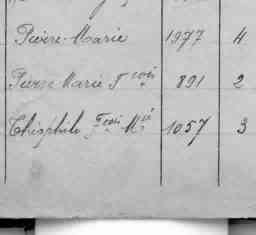 Pierre-Marie 1977 4
Pierre Marie Fcois 891 2
Théophile Fcois Mie 1057 3